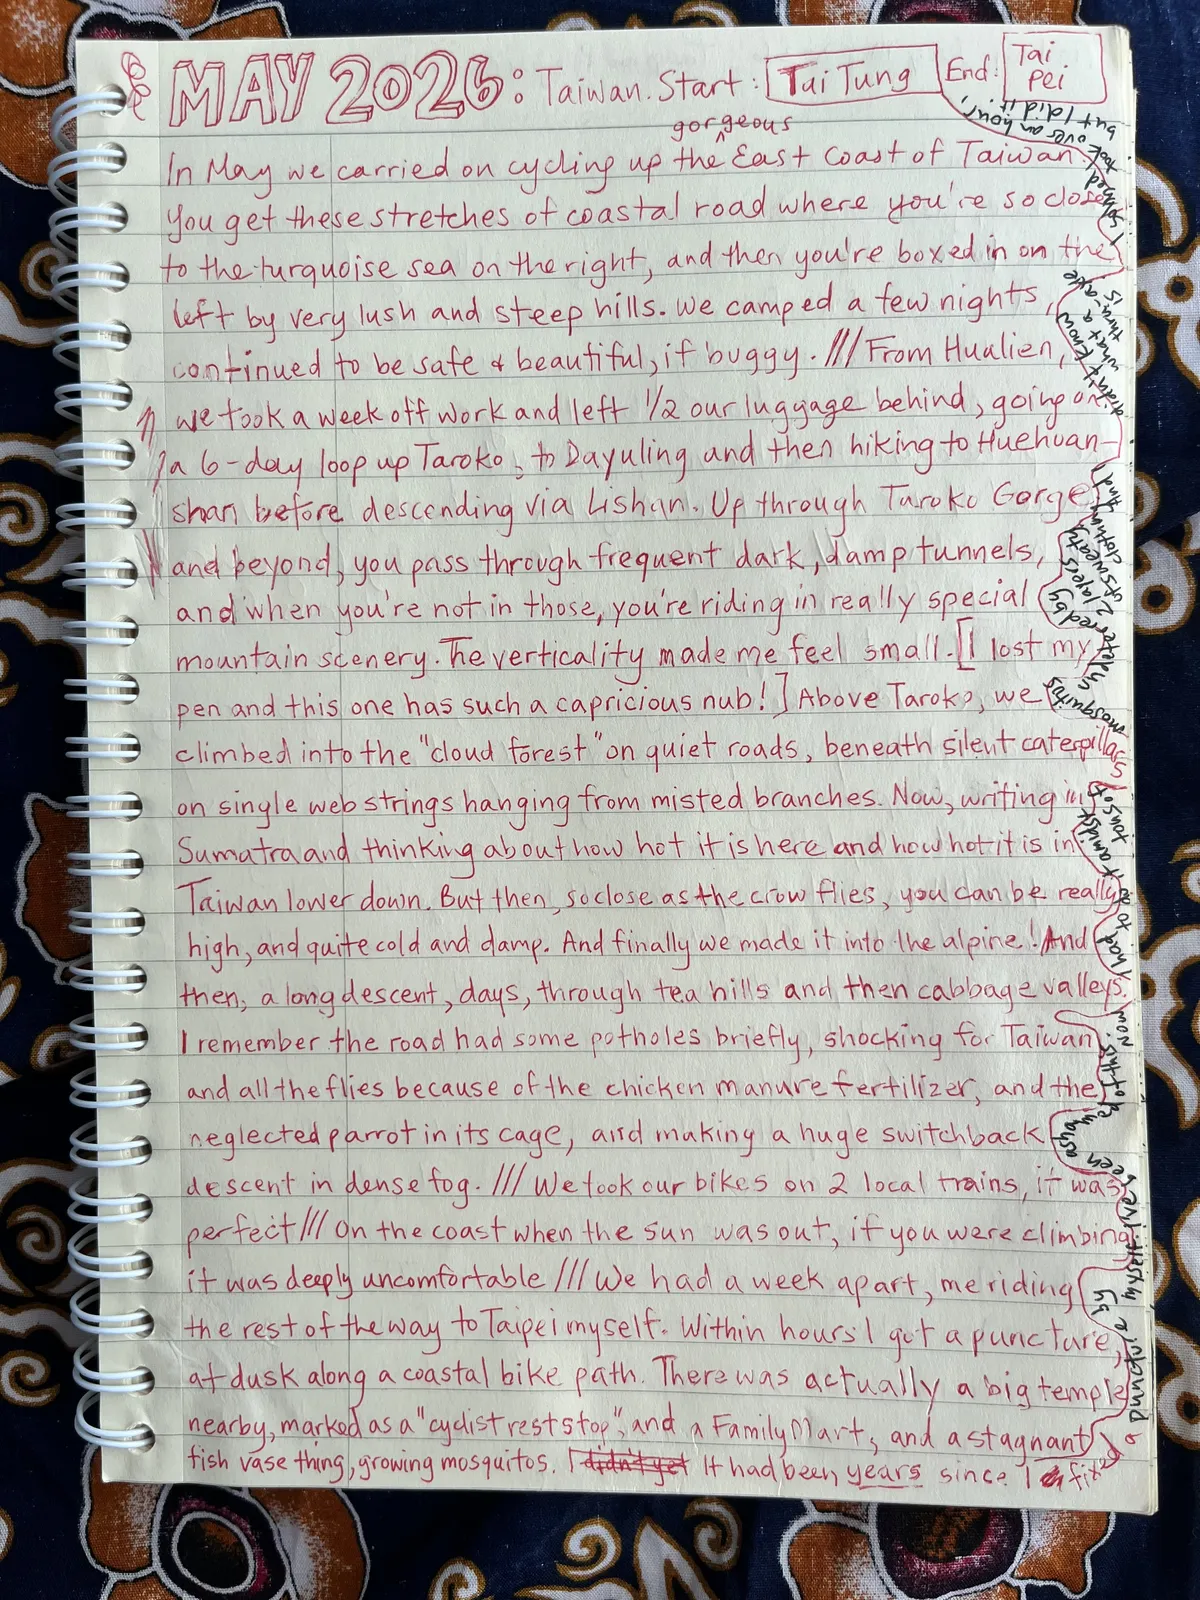 MAY 2026: Taiwan. Start: Tai Tung End: Tai Pei
gorgeous
In May we carried on cycling up the ^ East Coast of Taiwan.
You get these stretches of coastal road where you're so close
to the turquoise sea on the right, and then you're boxed in on the
left by very lush and steep hills. We camped a few nights,
continued to be safe & beautiful, if buggy. /// From Hualien,
we took a week off work and left 1/2 our luggage behind, going on
a 6-day loop up Taroko, to Dayuling and then hiking to Huehuan-
shan before descending via Lishan. Up through Taroko Gorge
and beyond, you pass through frequent dark, damp tunnels,
and when you're not in those, you're riding in really special
mountain scenery. The verticality made me feel small. [I lost my
pen and this one has such a capricious nub!] Above Taroko, we
climbed into the "cloud forest" on quiet roads, beneath silent caterpillars
on single web strings hanging from misted branches. Now, writing in
Sumatra and thinking about how hot it is here and how hot it is in
Taiwan lower down. But then, so close as the crow flies, you can be really
high, and quite cold and damp. And finally we made it into the alpine! And
then, a long descent, days, through tea hills and then cabbage valleys.
I remember the road had some potholes briefly, shocking for Taiwan
and all the flies because of the chicken manure fertilizer, and the
neglected parrot in its cage, and making a huge switchback
descent in dense fog. /// We took our bikes on 2 local trains, it was
perfect /// On the coast when the sun was out, if you were climbing
it was deeply uncomfortable /// We had a week apart, me riding
the rest of the way to Taipei myself. Within hours I got a puncture,
at dusk along a coastal bike path. There was actually a big temple
nearby, marked as a "cyclist rest stop", and a FamilyMart, and a stagnant
fish vase thing, growing mosquitos. I didn't get It had been years since I fix'd
a puncture by
myself, I've been
ashy
to tell this
Now
I had to do
it amidst
tons of
mosquitos
deterred by
2 layers
of sweaty
clothing. And I
didn't know
what a
thru-axle
is
I fathomed
took over an hour,
but I did it.